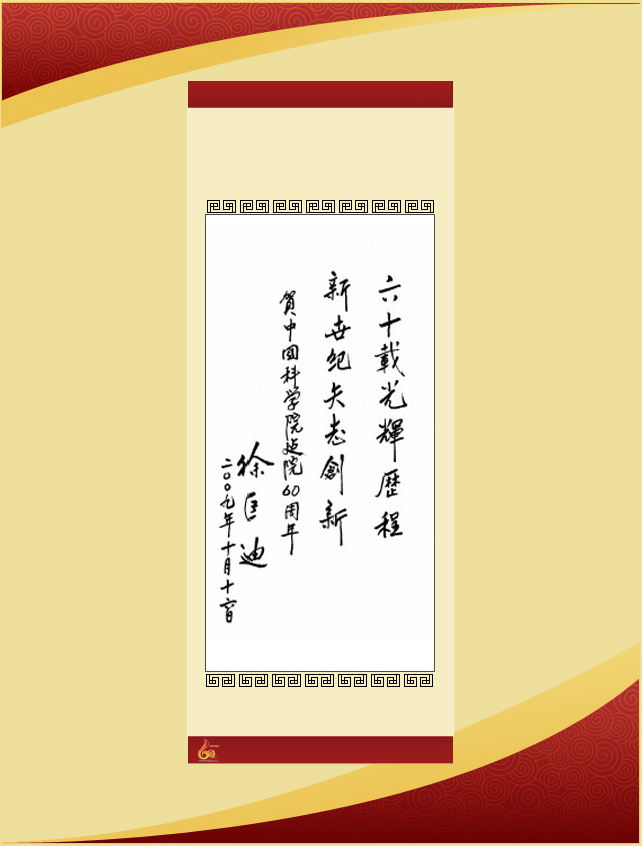 六十載光輝歷程
新世纪矢志創新
賀中国科学院建院60周年
徐匡迪
二〇〇九年十月十六日